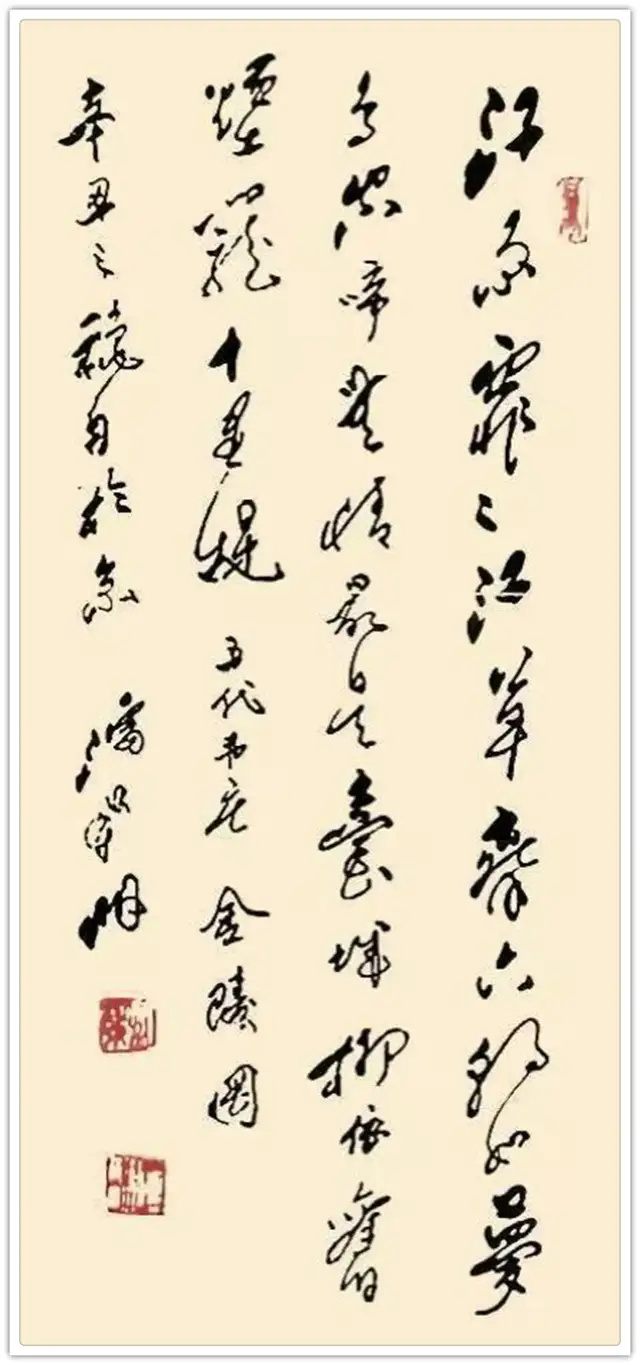 江雨霏〻江草齊六朝如夢
鳥空啼無情最是臺城柳依舊
煙籠十里堤 五代韦庄 金陵圖
辛丑之穐月於京 潘 明